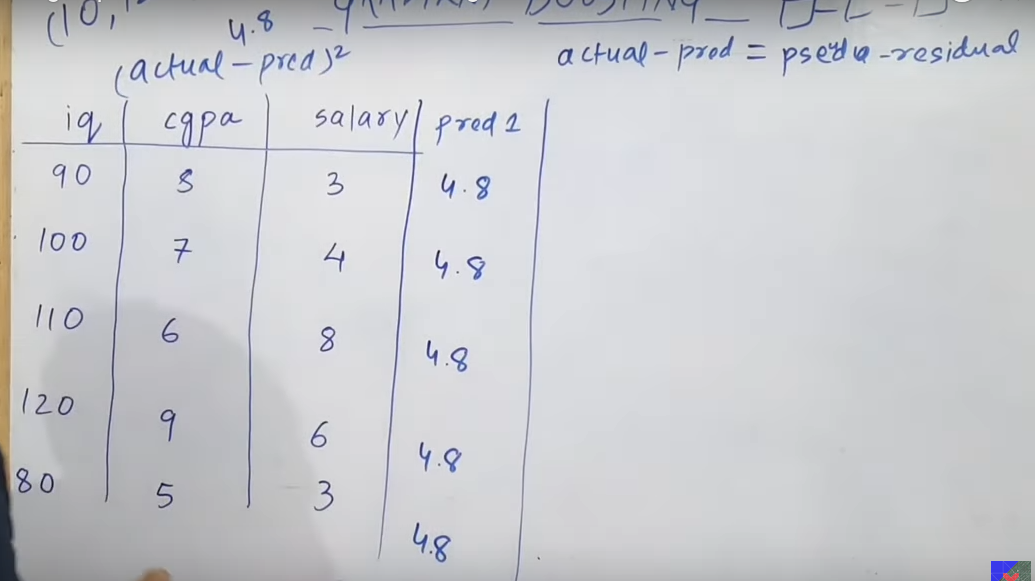 (10,
4.8 - GRADIENT BOOSTING
(actual-pred)² actual-pred = pseudo-residual
iq cgpa salary pred 1
90 8 3 4.8
100 7 4 4.8
110 6 8 4.8
120 9 6 4.8
80 5 3 4.8